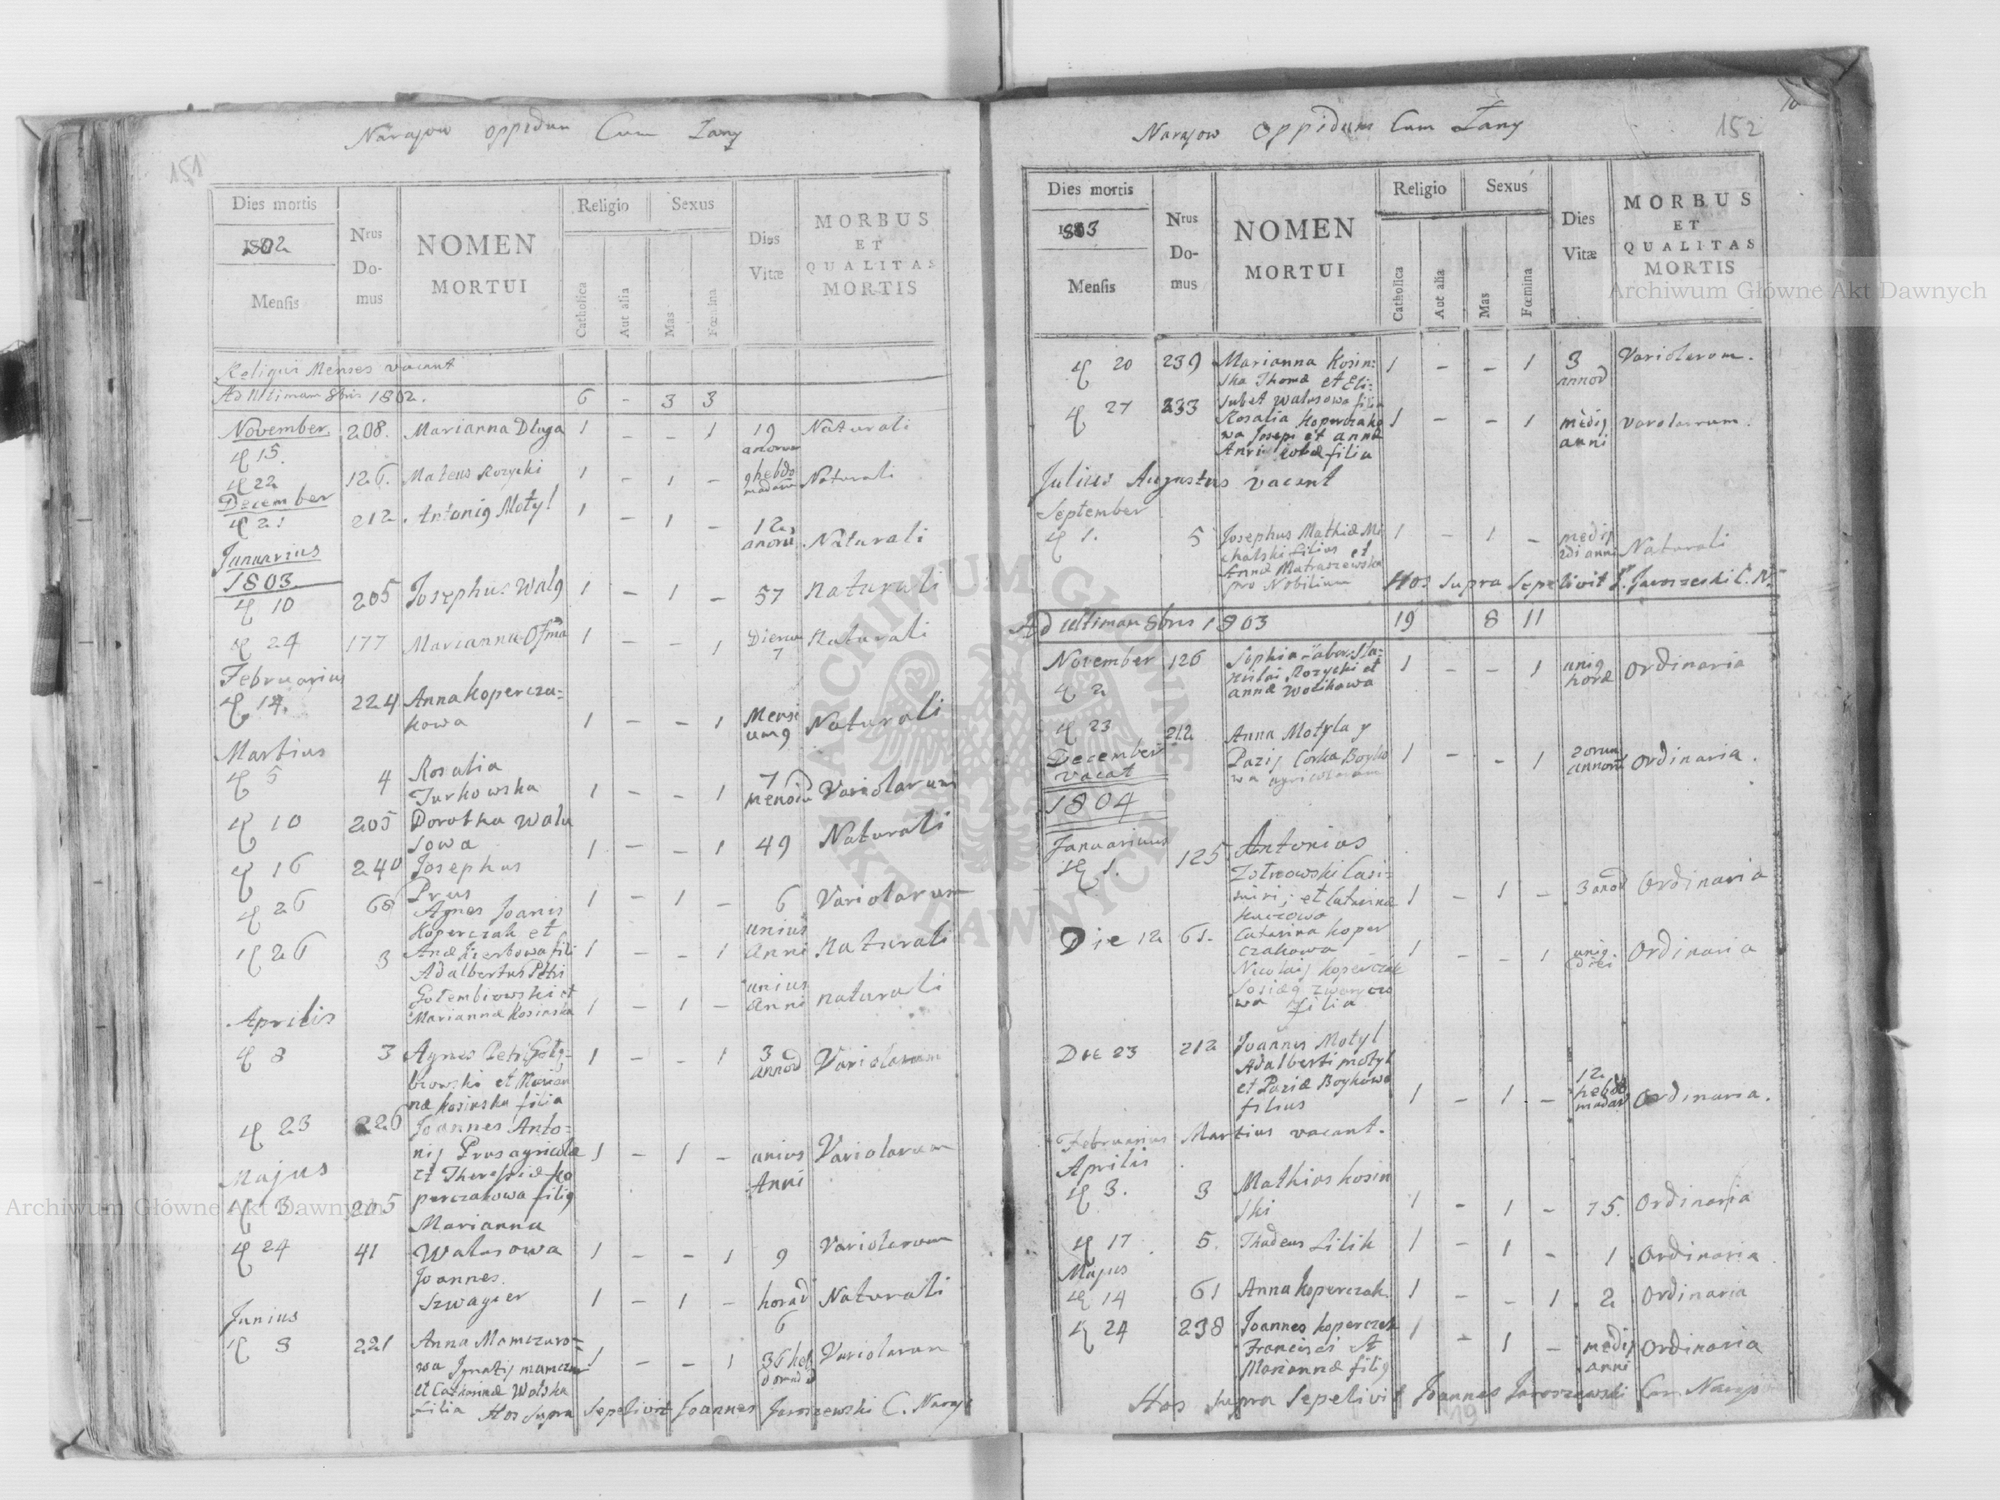 Narajow oppidum Cum Łany
151
Dies mortis
1802
Mensis
Nrus Domus
NOMEN MORTUI
Religio
Catholica
Aut alia
Sexus
Mas
Fœmina
Dies Vitæ
MORBUS ET QUALITAS MORTIS
Reliqui Menses vacant
Ad Ultimam 8bris 1802. 6 - 3 3
November
15. 208. Marianna Dluga 1 - - 1 19 anorum Naturali
22 126. Mateus Rozycki 1 - 1 - 9 hebdomadarum Naturali
December
21 212. Antonig Motyl 1 - 1 - 12 anorũ Naturali
Januarius
1803
10 205 Josephus Walg 1 - 1 - 57 Naturali
24 177 Marianna 1 - - 1 Dierum 7 Naturali
Februarius
14. 224 Anna Kopercza-
kowa 1 - - 1 Mensi umg Naturali
Martius
5 4 Rosalia
Turkowska 1 - - 1 7 Variolarum
10 205 Dorotha Walu
sowa 1 - - 1 49 Naturali
16 240 Josephus
Prus 1 - 1 - 6 Variolarum
26 68 Agnes Joanis
Koperczak et
fili 1 - - 1 unius Anni naturali
26 3 Adalbertus Petri
Gołembiowski et
Mariannæ Kosinska 1 - 1 - unius Anni naturali
Aprilis
8 3 Agnes Petri Goł
biowski et Marian
næ Kosinska filia 1 - - 1 3 Variolarum
23 226 Joannes Anto-
nij Prus agricolæ
et Theressiæ Ko
perczakowa filig 1 - 1 - unius Anni Variolarum
Majus
3 205 Marianna
Walusowa 1 - - 1 9 Variolarum
24 41 Joannes
Szwagier 1 - 1 - 6 Naturali
Junius
8 221 Anna Mamczaro-
wa Ignatij Mamczar
et Catharinæ Wolska
filia 1 - - 1 36 Variolarum
Hos supra sepelivit Joannes Jaroszewski C. Naraj
Narajow oppidum Cum Łany
152
Dies mortis
1803
Mensis
Nrus Domus
NOMEN MORTUI
Religio
Catholica
Aut alia
Sexus
Mas
Fœmina
Dies Vitæ
MORBUS ET QUALITAS MORTIS
20 239 Marianna Kosin-
ska Thomæ et Eli-
sabet Walusowa filia 1 - - 1 3 Variolarum.
27 233 Rosalia Koperczako
wa Josepi et annæ
filia 1 - - 1 medij anni
Julius Augustus vacant
September
1. 5 Josephus Mathiæ Mi
chalski filius et
Annæ Matraszewska
pro Nobilium 1 - 1 - medij anni Naturali
Hos supra Sepelivit J. Jaroszeski C. N.
Ad Ultimam 8bris 1803 19 8 11
November
2 126 Sophia
Rozycki et
annæ Wolikowa 1 - - 1 unig horæ Ordinaria
23 212 Anna Motyla
Pazij Corka Boyko
wa agricolarum 1 - - 1 Ordinaria.
December
vacat
1804
Januarius
1. 125 Antonius
Casi-
miri, et Catarina 1 - 1 - 3 Ordinaria
Die 12 61. Catarina Koper
czakowa
Nicolaij Koperczak
filia 1 - - 1 Ordinaria
Die 23 212 Joannes Motyl
Adalberti Motyl
et Paziæ Boykowa
filius 1 - 1 - 12 hebdomadar Ordinaria.
Februarius Martius vacant.
Aprilis
3. 3 Mathias Kosin
ski 1 - 1 - 75. Ordinaria
17 5. Thadeus Lilik 1 - 1 - 1 Ordinaria
Majus
14 61 Anna Koperczak 1 - - 1 2 Ordinaria
24 238 Joannes Koperczak
Francisci et
Mariannæ filig 1 - 1 - medij anni Ordinaria
Hos supra Sepelivit Joannes Jaroszewski Cur Naraj
19
Archiwum Główne Akt Dawnych
Archiwum Główne Akt Dawnych
ARCHIWUM GŁÓWNE AKT DAWNYCH